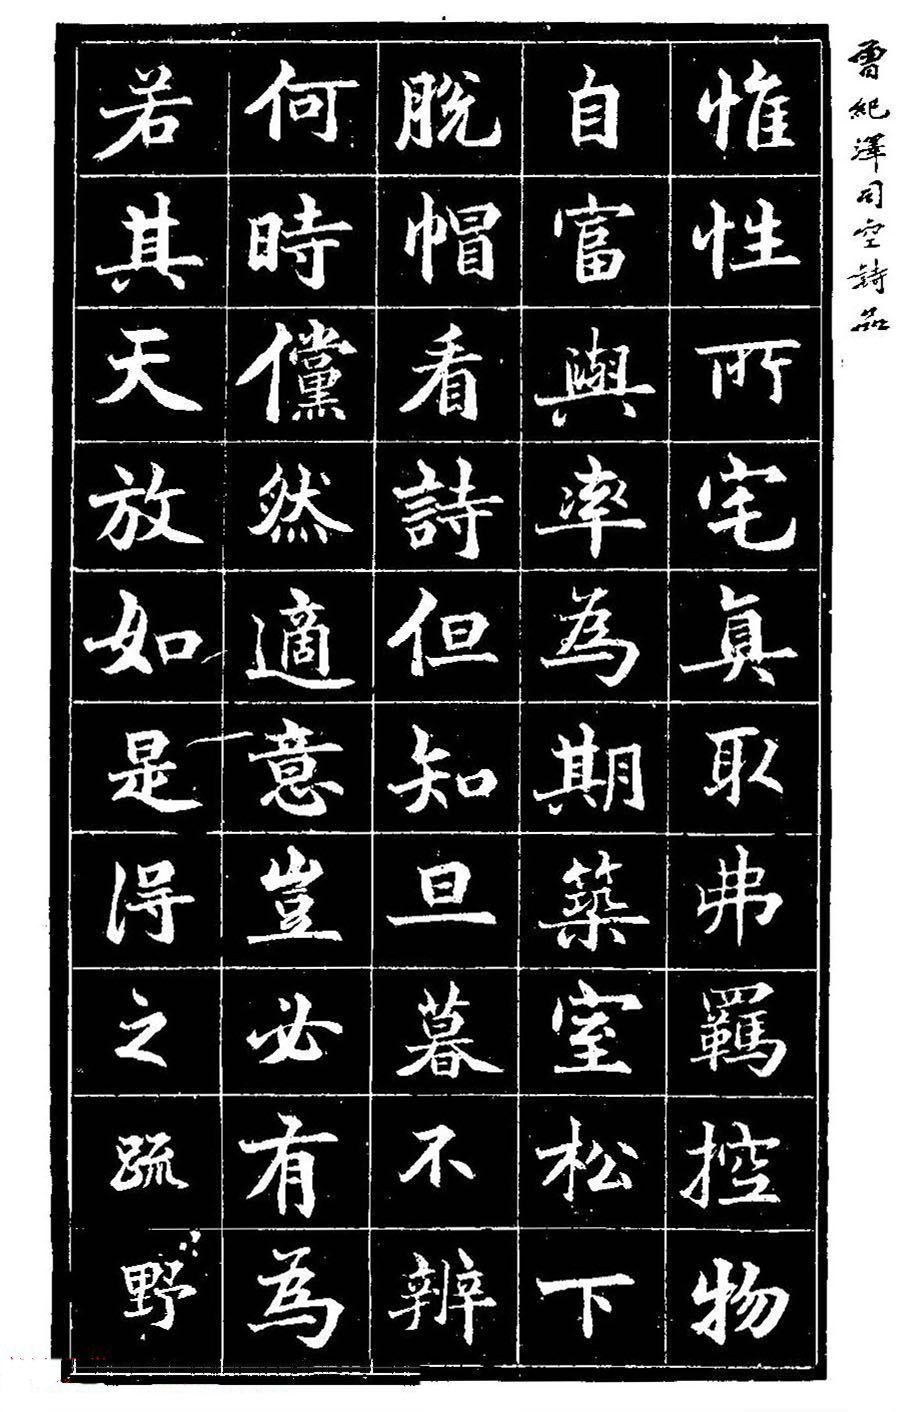 曾紀澤司空詩品
惟性所宅真取弗羈控物
自富與率為期築室松下
脫帽看詩但知旦暮不辨
何時儻然適意豈必有為
若其天放如是得之疏野